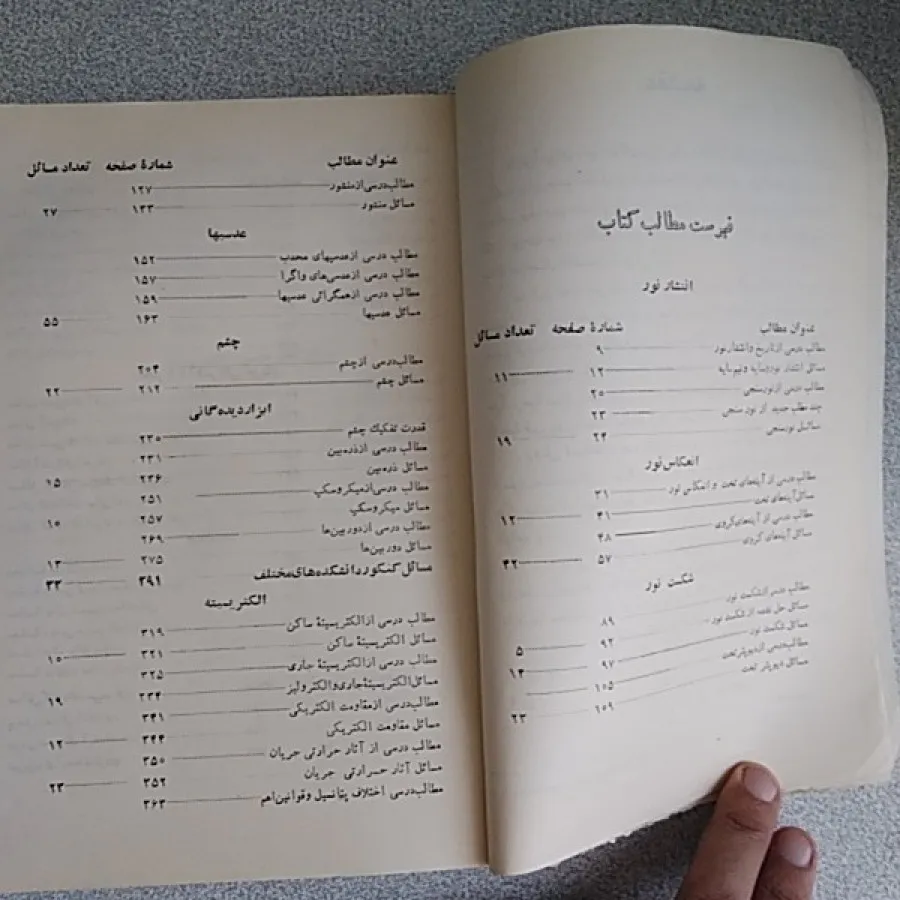 فهرست مطالب کتاب
انتشار نور
عنوان مطالب شمارهٔ صفحه تعداد مسائل
مطالب درسی از تاریخ و انتشار نور ۹
مسائل انتشار نور و سایه و نیم‌سایه ۱۲ ۱۱
مطالب درسی از نورسنجی ۲۰
چند مطلب جدید از نورسنجی ۲۳
مسائل نورسنجی ۲۴ ۱۹
انعکاس نور
مطالب درسی از آینه‌های تخت و انعکاس نور ۳۱
مسائل آینه‌های تخت ۴۱ ۱۲
مطالب درسی از آینه‌های کروی ۴۸
مسائل آینه‌های کروی ۵۷ ۴۲
شکست نور
مطالب درسی از شکست نور ۸۹
مسائل حل شده از شکست نور ۹۲ ۵
مسائل شکست نور ۹۷ ۱۴
مطالب درسی از دیوپتر تخت ۱۰۵
مسائل دیوپتر تخت ۱۰۹ ۲۳
عنوان مطالب شمارهٔ صفحه تعداد مسائل
مطالب درسی از منشور ۱۲۷
مسائل منشور ۱۳۳ ۲۷
عدسیها
مطالب درسی از عدسیهای محدب ۱۵۲
مطالب درسی از عدسی‌های واگرا ۱۵۷
مطالب درسی از همگرائی عدسیها ۱۵۹
مسائل عدسیها ۱۶۳ ۵۵
چشم
مطالب درسی از چشم ۲۰۴
مسائل چشم ۲۱۲ ۲۲
ابزار دیده‌گانی
قدرت تفکیک چشم ۲۳۰
مطالب درسی از ذره‌بین ۲۳۱
مسائل ذره‌بین ۲۳۶ ۱۵
مطالب درسی از میکروسکپ ۲۵۱
مسائل میکروسکپ ۲۵۷ ۱۰
مطالب درسی از دوربین‌ها ۲۶۹
مسائل دوربین‌ها ۲۷۵ ۱۳
مسائل کنکور دانشکده‌های مختلف ۲۹۱ ۳۳
الکتریسیته
مطالب درسی از الکتریسیتهٔ ساکن ۳۱۹
مسائل الکتریسیتهٔ ساکن ۳۲۱ ۱۰
مطالب درسی از الکتریسیتهٔ جاری ۳۲۵
مسائل الکتریسیتهٔ جاری و الکترولیز ۳۳۴ ۱۹
مطالب درسی از مقاومت الکتریکی ۳۴۱
مسائل مقاومت الکتریکی ۳۴۴ ۱۲
مطالب درسی از آثار حرارتی جریان ۳۵۰
مسائل آثار حرارتی جریان ۳۵۲ ۲۳
مطالب درسی اختلاف پتانسیل و قوانین اهم ۳۶۳